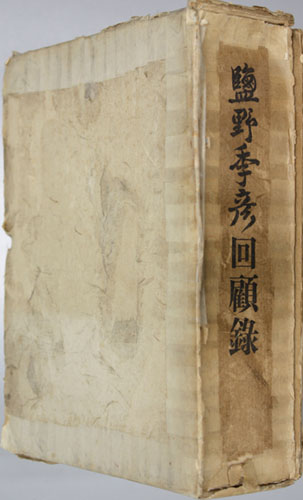 鹽野季彦回顧錄